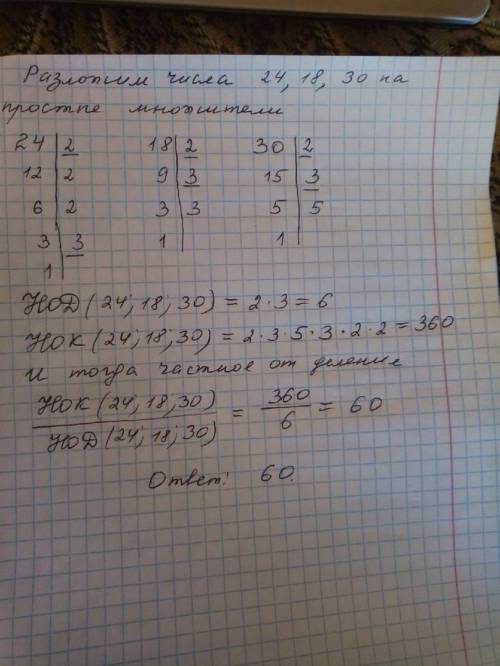 Разложим числа 24, 18, 30 на
простые множители
24 | 2 18 | 2 30 | 2
12 | 2 9 | 3 15 | 3
6 | 2 3 | 3 5 | 5
3 | 3 1 | 1 |
1 |
НОД (24; 18; 30) = 2 · 3 = 6
НОК (24; 18; 30) = 2 · 3 · 5 · 3 · 2 · 2 = 360
И тогда частное от деление
НОК (24, 18, 30) / НОД (24; 18; 30) = 360 / 6 = 60
Ответ: 60.